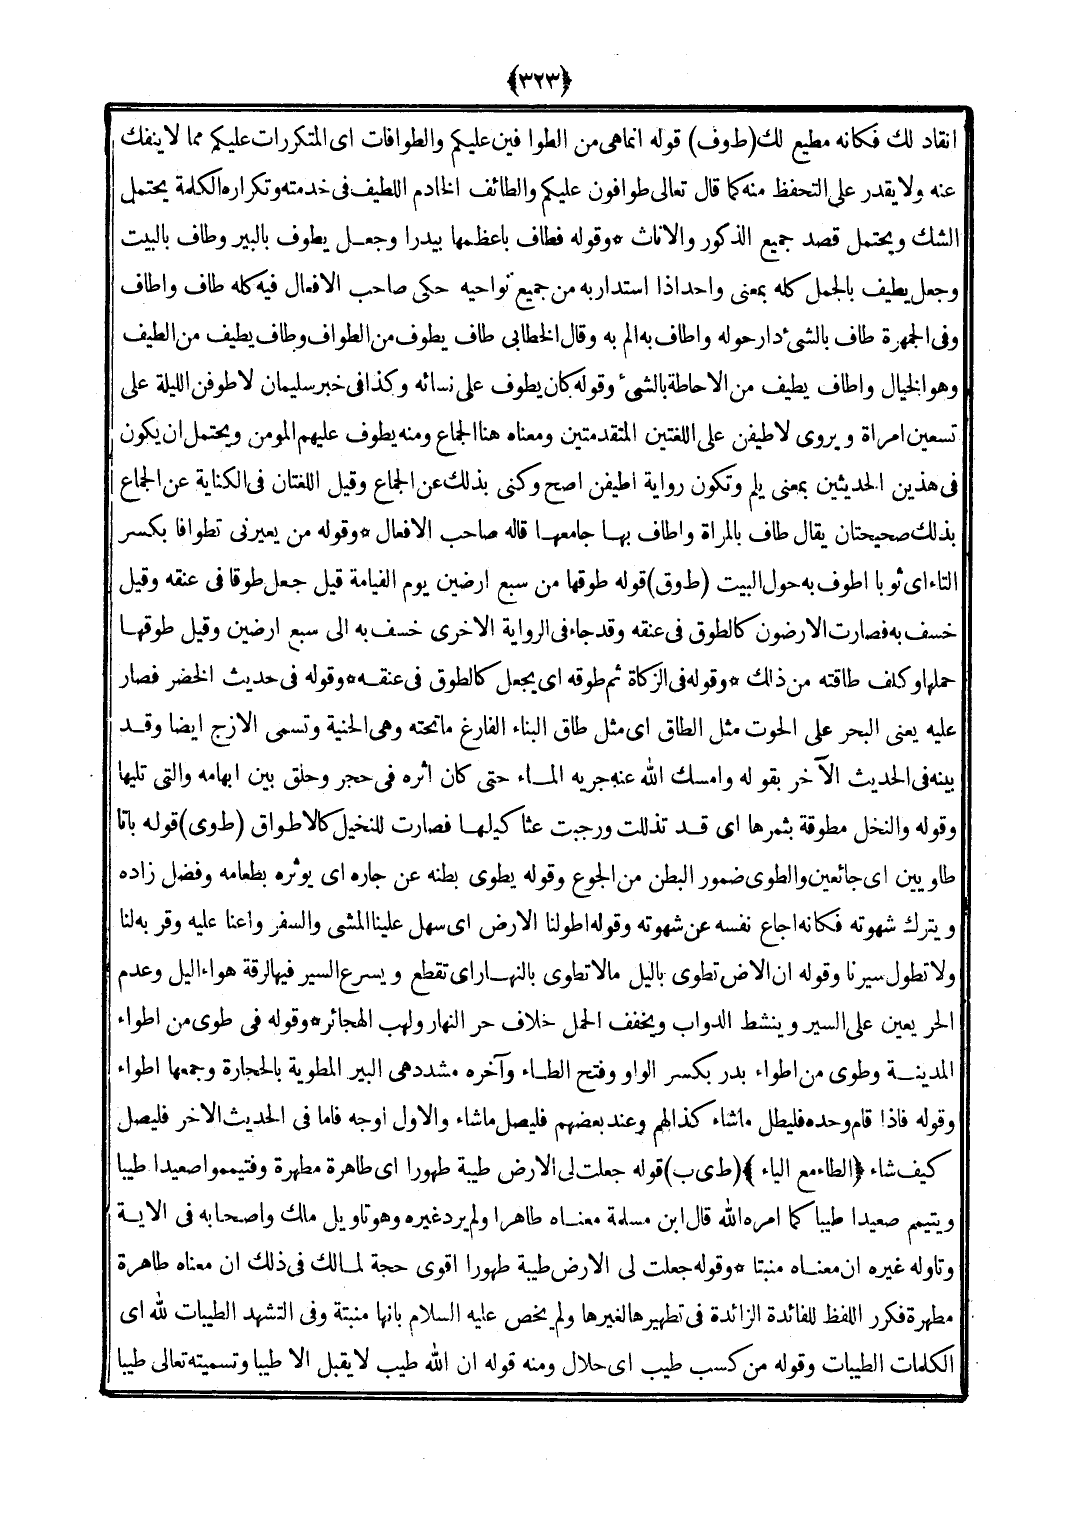 ﴿٣٢٣﴾
انقاد لك فكانه مطيع لك (طوف) قوله انماهى من الطوا فين عليكم والطوافات اى المتكررات عليكم مما لا ينفك
عنه ولا يقدر على التحفظ منه كما قال تعالى طوافون عليكم والطائف الخادم اللطيف فى خدمته وتكراره الكلمة يحتمل
الشك ويحتمل قصد جميع الذكور والاناث * وقوله فطاف باعظمها بيدرا وجعل يطوف بالبير وطاف بالبيت
وجعل يطيف بالجمل كله بمعنى واحد اذا استدار به من جميع نواحيه حكى صاحب الافعال فيه كله طاف واطاف
وفى الجمهرة طاف بالشئ دار حوله واطاف به الم به وقال الخطابى طاف يطوف من الطواف وطاف يطيف من الطيف
وهو الخيال واطاف يطيف من الاحاطة بالشئ وقوله كان يطوف على نسائه وكذا فى خبر سليمان لاطوفن الليلة على
تسعين امراة ويروى لاطيفن على اللغتين المتقدمتين ومعناه هنا الجماع ومنه يطوف عليهم المومن ويحتمل ان يكون
فى هذين الحديثين بمعنى يلم وتكون رواية اطيفن اصح وكنى بذلك عن الجماع وقيل اللغتان فى الكناية عن الجماع
بذلك صحيحتان يقال طاف بالمراة واطاف بها جامعها قاله صاحب الافعال * وقوله من يعيرنى تطوافا بكسر
التاء اى ثو با اطوف به حول البيت (طوق) قوله طوقها من سبع ارضين يوم القيامة قيل جعل طوقا فى عنقه وقيل
خسف به فصارت الارضون كالطوق فى عنقه وقد جاء فى الرواية الاخرى خسف به الى سبع ارضين وقيل طوقها
حملها وكلف طاقته من ذالك * وقوله فى الزكاة ثم طوقه اى يجعل كالطوق فى عنقه * وقوله فى حديث الخضر فصار
عليه يعنى البحر على الحوت مثل الطاق اى مثل طاق البناء الفارغ ماتحته وهى الحنية وتسمى الازج ايضا وقد
بينه فى الحديث الآخر بقوله وامسك الله عنه جريه الماء حتى كان أثره فى حجر وحلق بين ابهامه والتى تليها
وقوله والنخل مطوقة بثمرها اى قد تذللت ورجبت عثا كيلها فصارت للنخيل كالاطواق (طوى) قوله باتا
طاويين اى جائعين والطوى ضمور البطن من الجوع وقوله يطوى بطنه عن جاره اى يوثره بطعامه وفضل زاده
ويترك شهوته فكانه اجاع نفسه عن شهوته وقوله اطولنا الارض اى سهل علينا المشى والسفر واعنا عليه وقر به لنا
ولا تطول سيرنا وقوله ان الاض تطوى باليل مالا تطوى بالنهار اى تقطع ويسرع السير فيها لرقة هواء اليل وعدم
الحر يعين على السير وينشط الدواب ويخفف الحمل خلاف حر النهار ولهب الهجائر * وقوله فى طوى من اطواء
المدينة وطوى من اطواء بدر بكسر الواو وفتح الطاء وآخره مشدد هى البير المطوية بالحجارة وجمعها اطواء
وقوله فاذا قام وحده فليطل ماشاء كذالهم وعند بعضهم فليصل ماشاء والاول اوجه فاما فى الحديث الاخر فليصل
كيف شاء ﴿الطاء مع الياء﴾ (طىب) قوله جعلت لى الارض طيبة طهورا اى طاهرة مطهرة وفتيمموا صعيدا طيبا
ويتيمم صعيدا طيبا كما امره الله قال ابن مسلمة معناه طاهرا ولم يرد غيره وهو تاويل مالك واصحابه فى الاية
وتاوله غيره ان معناه منبتا * وقوله جعلت لى الارض طيبة طهورا اقوى حجة لمالك فى ذلك ان معناه طاهرة
مطهرة فكرر اللفظ للفائدة الزائدة فى تطهيرها لغيرها ولم يخص عليه السلام بانها منبتة وفى التشهد الطيبات لله اى
الكلمات الطيبات وقوله من كسب طيب اى حلال ومنه قوله ان الله طيب لا يقبل الا طيبا وتسميته تعالى طيبا